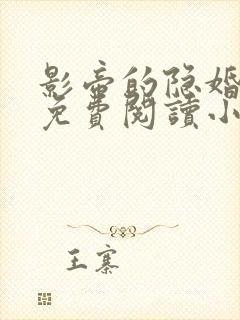 影帝的隐婚
免費閱讀小
王寨